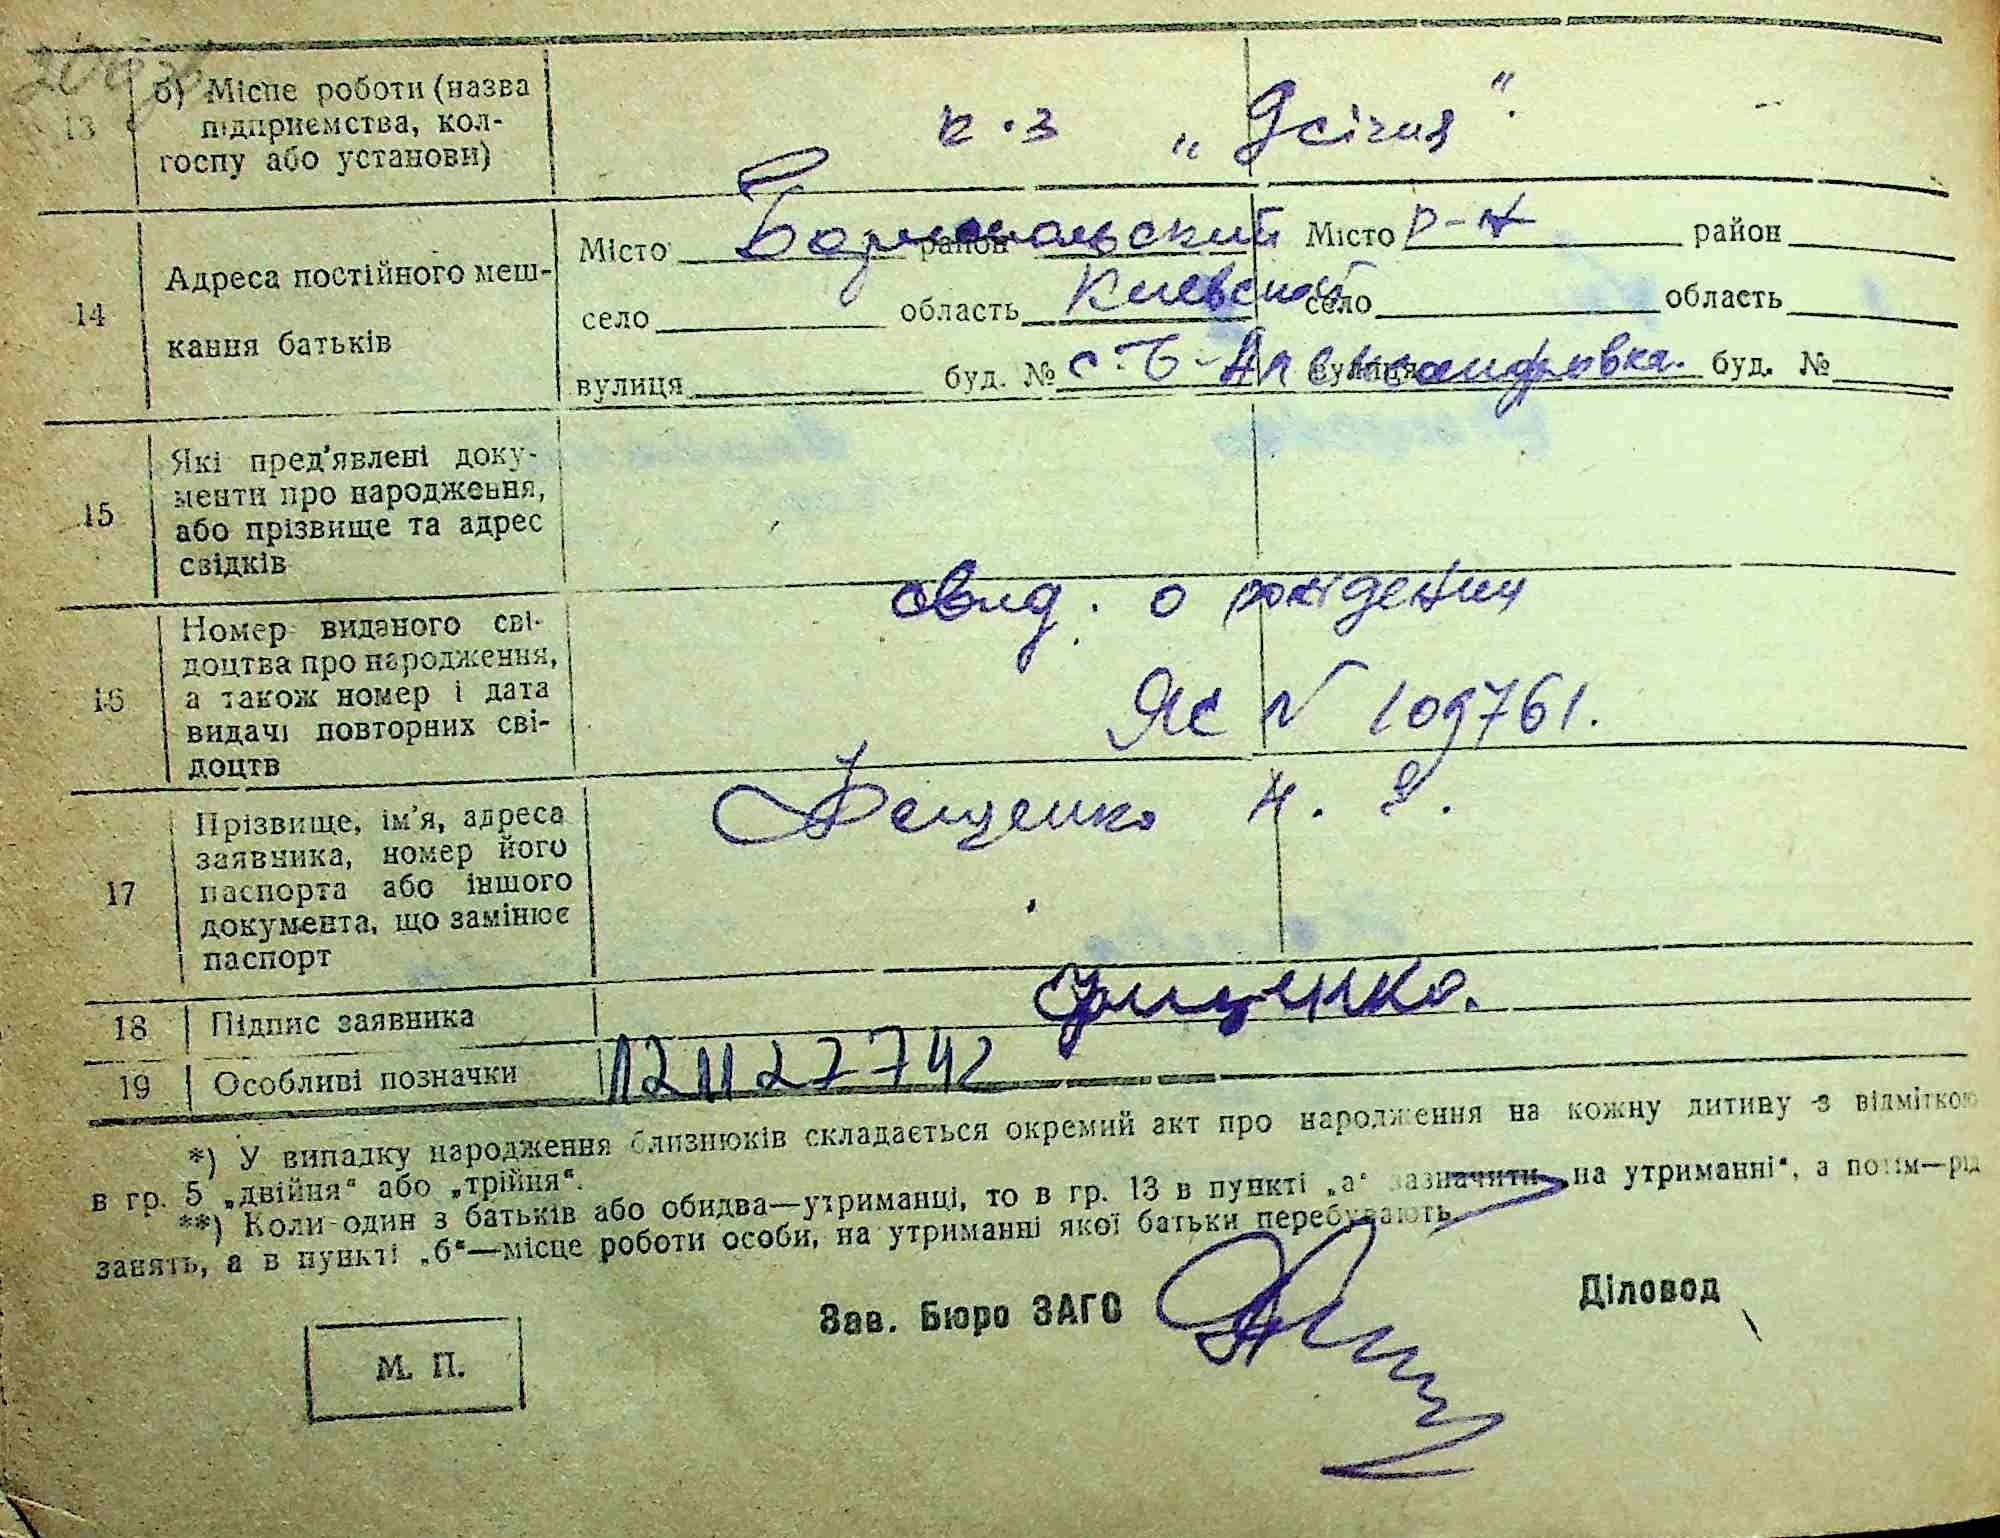 13
б) Місце роботи (назва
підприємства, кол-
госпу або установи)
к-з „9 січня“.
14
Адреса постійного меш-
кання батьків
Місто Бориспольский район Місто р-н район
село область Киевской село область
вулиця буд. № с. Б-Александровка. вулиця буд. №
15
Які пред'явлені доку-
менти про народження,
або прізвище та адрес
свідків
16
Номер виданого сві-
доцтва про народження,
а також номер і дата
видачі повторних сві-
доцтв
свид. о рождении
ЯС № 109761.
17
Прізвище, ім'я, адреса
заявника, номер його
паспорта або іншого
документа, що замінює
паспорт
Фещенко Н.
18 Підпис заявника
19 Особливі позначки
*) У випадку народження близнюків складається окремий акт про народження на кожну дитину з відміткою
в гр. 5 „двійня“ або „трійня“.
**) Коли один з батьків або обидва—утриманці, то в гр. 13 в пункті „а“ зазначити „на утриманні“, а потім—рід
занять, а в пункті „б“—місце роботи особи, на утриманні якої батьки перебувають.
Зав. Бюро ЗАГС
Діловод
М. П.